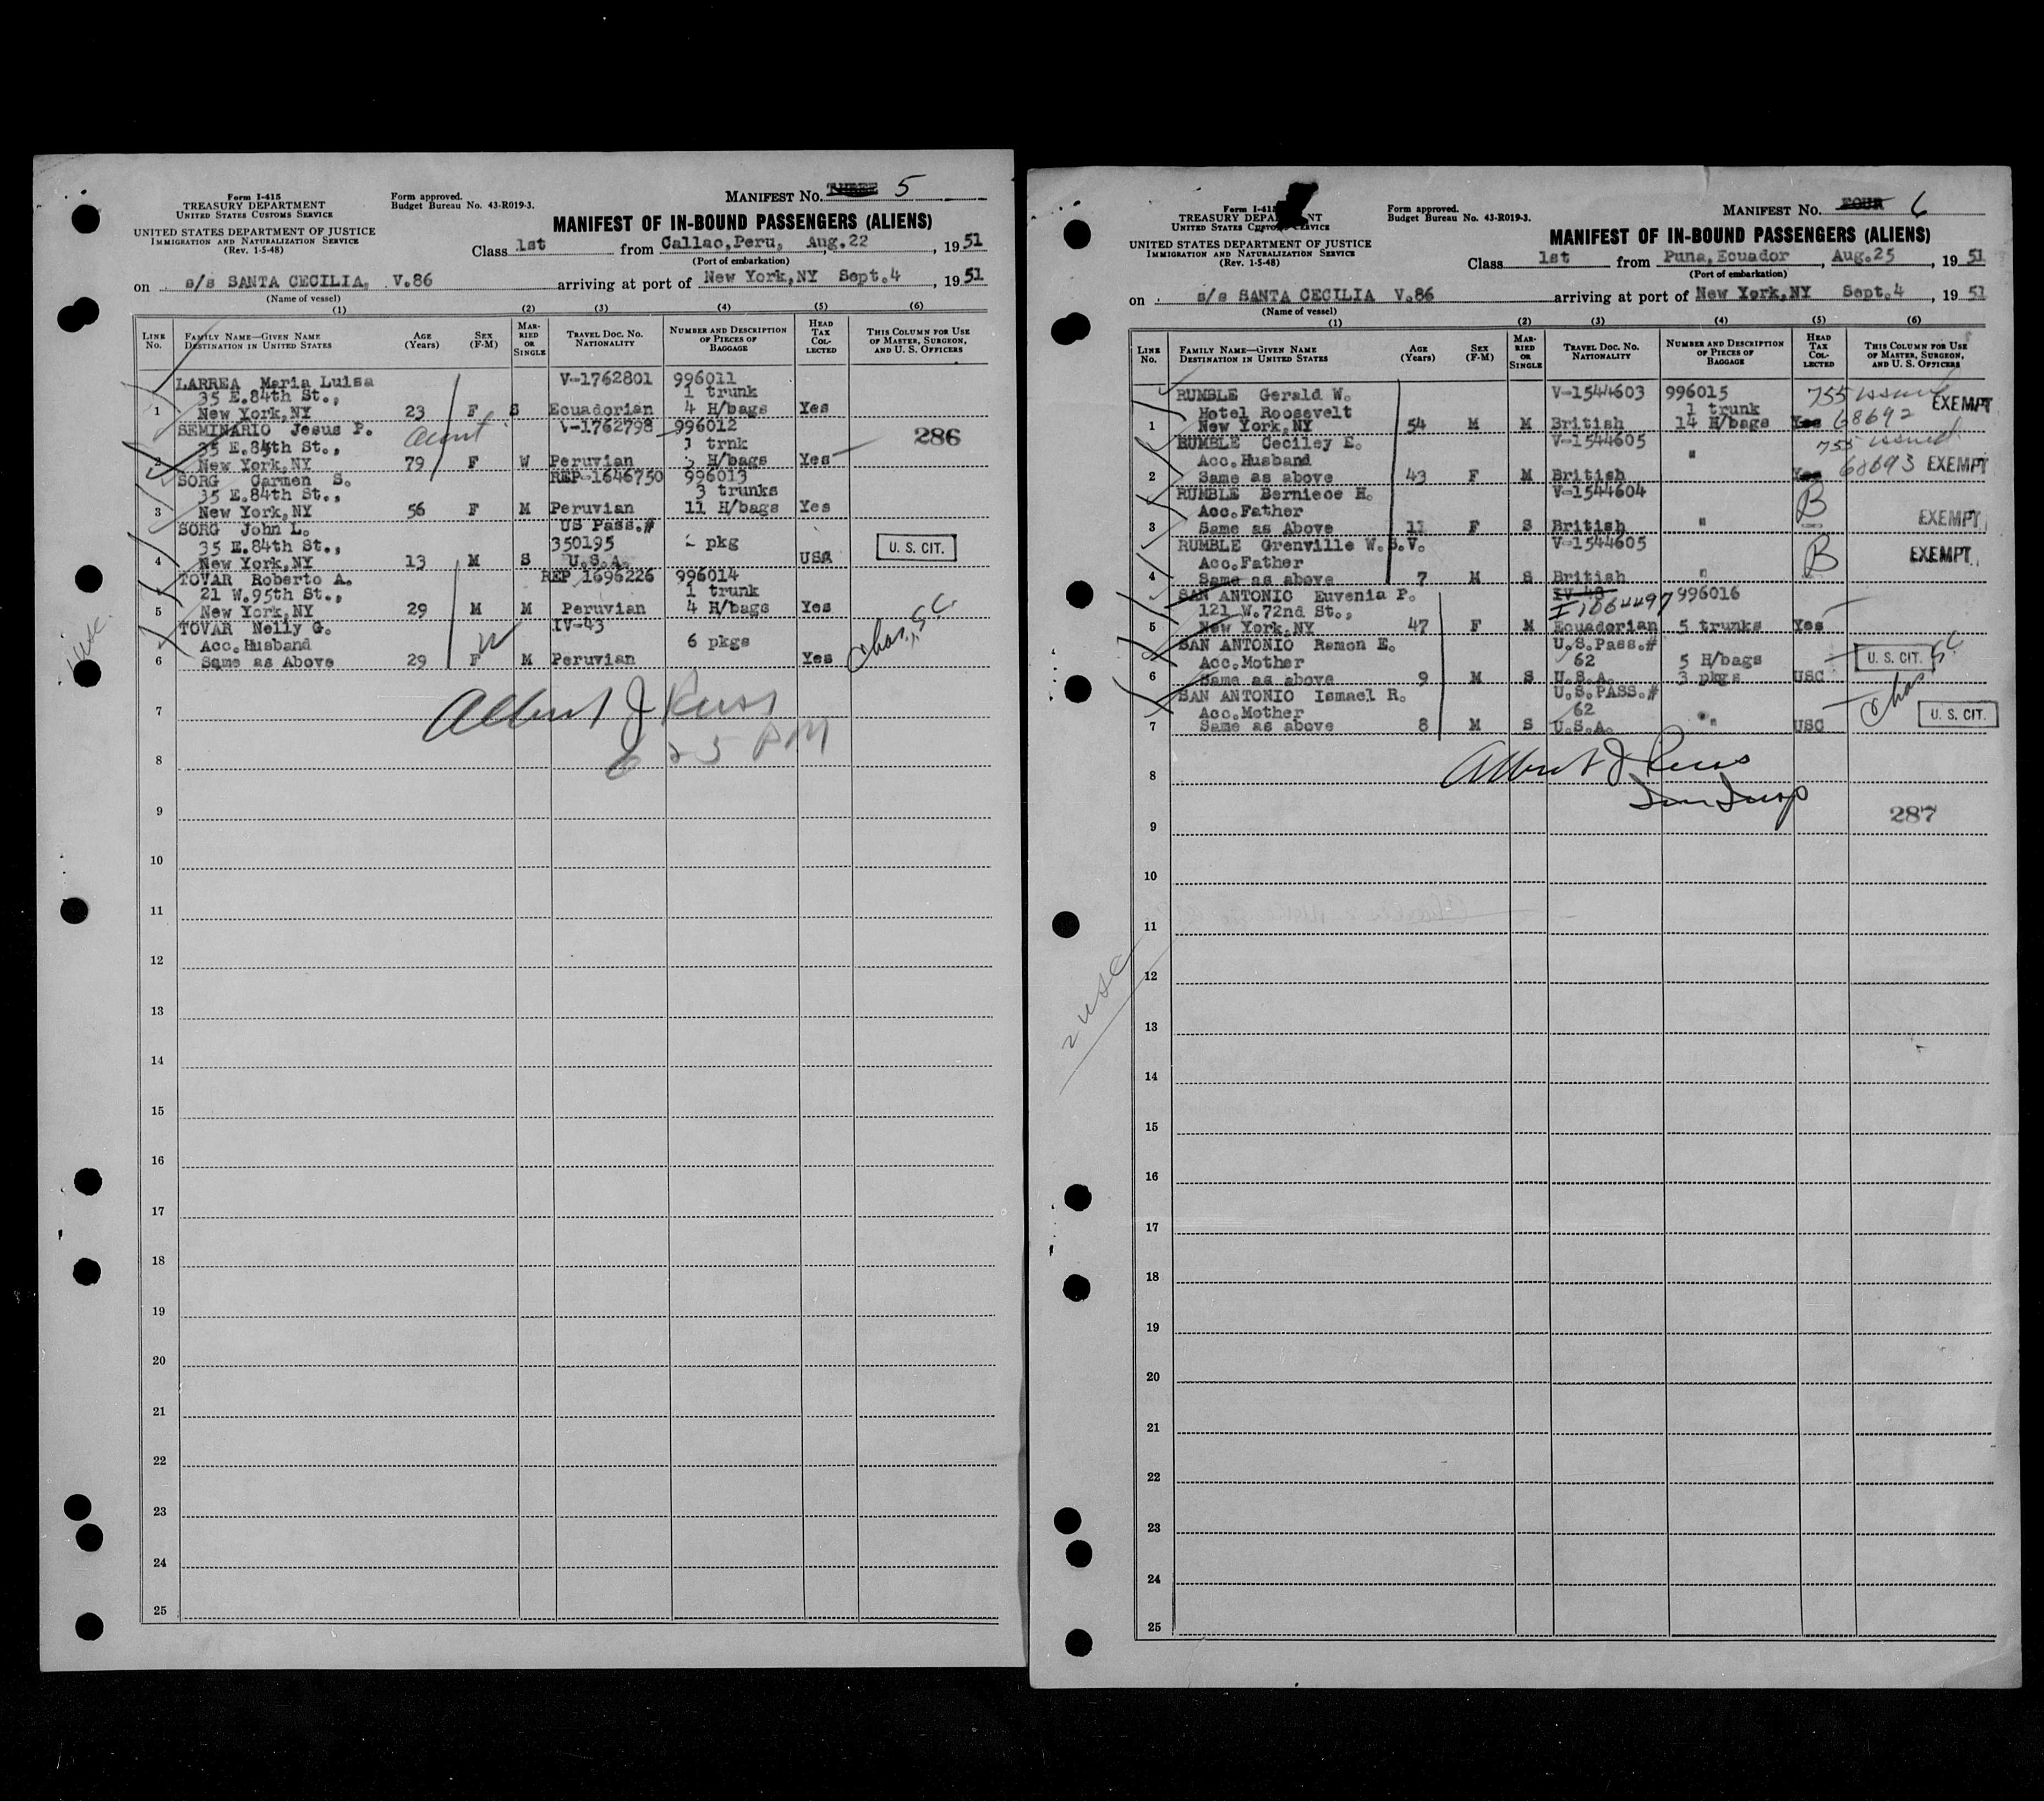 Form I-415
TREASURY DEPARTMENT
UNITED STATES CUSTOMS SERVICE
UNITED STATES DEPARTMENT OF JUSTICE
IMMIGRATION AND NATURALIZATION SERVICE
(Rev. 1-5-48)
Form approved.
Budget Bureau No. 43-R019-3.
MANIFEST No. THREE 5
MANIFEST OF IN-BOUND PASSENGERS (ALIENS)
Class 1st from Callao, Peru, Aug. 22, 1951
(Port of embarkation)
on s/s SANTA CECILIA, V.86 arriving at port of New York, NY Sept. 4, 1951
(Name of vessel)
(1) (2) (3) (4) (5) (6)
LINE No. FAMILY NAME—GIVEN NAME DESTINATION IN UNITED STATES AGE (Years) SEX (F-M) MARRIED OR SINGLE TRAVEL DOC. NO. NATIONALITY NUMBER AND DESCRIPTION OF PIECES OF BAGGAGE HEAD TAX COLLECTED THIS COLUMN FOR USE OF MASTER, SURGEON, AND U. S. OFFICERS
LARREA Maria Luisa V-1762801 996011
35 E.84th St., 1 trunk
1 New York, NY 23 F S Ecuadorian 4 H/bags Yes
SEMINARIO Jesus P. aunt V-1762798 996012
35 E.84th St., 1 trnk 286
2 New York, NY 79 F W Peruvian 3 H/bags Yes
SORG Carmen S. REP-1646750 996013
35 E.84th St., 3 trunks
3 New York, NY 56 F M Peruvian 11 H/bags Yes
SORG John L. US Pass.#
35 E.84th St., 350195 pkg U. S. CIT.
4 New York, NY 13 M S U.S.A. USC
TOVAR Roberto A. REP 1696226 996014
21 W.95th St., 1 trunk
5 New York, NY 29 M M Peruvian 4 H/bags Yes
TOVAR Nelly G. IV-43
Acc. Husband 6 pkgs
6 Same as Above 29 F M Peruvian Yes
7 Albert J Russ
8 6 25 PM
9
10
11
12
13
14
15
16
17
18
19
20
21
22
23
24
25
Form I-415
TREASURY DEPARTMENT
UNITED STATES CUSTOMS SERVICE
UNITED STATES DEPARTMENT OF JUSTICE
IMMIGRATION AND NATURALIZATION SERVICE
(Rev. 1-5-48)
Form approved.
Budget Bureau No. 43-R019-3.
MANIFEST No. FOUR 6
MANIFEST OF IN-BOUND PASSENGERS (ALIENS)
Class 1st from Puna, Ecuador, Aug. 25, 1951
(Port of embarkation)
on s/s SANTA CECILIA V.86 arriving at port of New York, NY Sept. 4, 1951
(Name of vessel)
(1) (2) (3) (4) (5) (6)
LINE No. FAMILY NAME—GIVEN NAME DESTINATION IN UNITED STATES AGE (Years) SEX (F-M) MARRIED OR SINGLE TRAVEL DOC. NO. NATIONALITY NUMBER AND DESCRIPTION OF PIECES OF BAGGAGE HEAD TAX COLLECTED THIS COLUMN FOR USE OF MASTER, SURGEON, AND U. S. OFFICERS
RUMBLE Gerald W. V-1544603 996015 755 issued EXEMPT
Hotel Roosevelt 1 trunk 68692
1 New York, NY 54 M M British 14 H/bags Yes
RUMBLE Ceciley E. V-1544605 755 issued
Acc. Husband " 68693 EXEMPT
2 Same as above 43 F M British Yes
RUMBLE Berniece H. V-1544604 B
Acc. Father EXEMPT
3 Same as Above 11 F S British "
RUMBLE Grenville W.S.V. V-1544605 B EXEMPT
Acc. Father
4 Same as above 7 M S British "
SAN ANTONIO Euvenia P. IV-43 996016
121 W.72nd St., I 1064497
5 New York, NY 47 F M Ecuadorian 5 trunks Yes
SAN ANTONIO Ramon E. U.S.Pass.# U. S. CIT.
Acc. Mother 62 5 H/bags
6 Same as above 9 M S U.S.A. 3 pkgs USC
SAN ANTONIO Ismael R. U.S.PASS.#
Acc. Mother 62 " U. S. CIT.
7 Same as above 8 M S U.S.A. USC
8 Albert J Russ
Imm Insp
9 287
10
11
12 2 USC
13
14
15
16
17
18
19
20
21
22
23
24
25